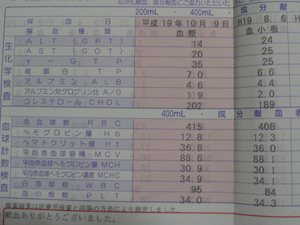 400mL献血、成分献血にご協力いただいた
200mL・400mL 成分献
採血日 平成19年10月9日 H19. 8. 6
採血種類 血液 血小板
生化学検査
ALT(GPT) 14 24
AST(GOT) 20 25
γ-GTP 35 35
総蛋白 TP 7.0 6.6
アルブミン ALB 4.6 4.
アルブミン対グロブリン比 A/G 1.9 2.0
コレステロール CHOL 202 189
400mL 成分献血
血球計数検査
赤血球数 RBC 415 408
ヘモグロビン量 Hb 12.8 12.
ヘマトクリット値 Ht 36.8 36.0
平均赤血球容積 MCV 88.6 88.
平均赤血球ヘモグロビン量 MCH 30.9 30.1
平均赤血球ヘモグロビン濃度 MCHC 34.9 34.1
白血球数 WBC 95 84
血小板数 PLT 34.0 34.
検査結果は医療用検査と同様の方法により測定しました。
献血ありがとうございました。